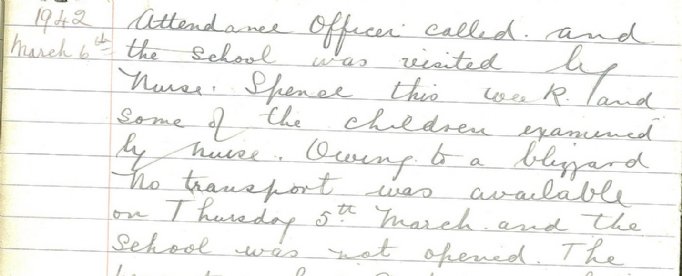 1942 Attendance Officer called. and
March 6th the school was visited by
Nurse. Spence this week. and
some of the children examined
by nurse. Owing to a blizzard
no transport was available
on Thursday 5th March and the
school was not opened. The